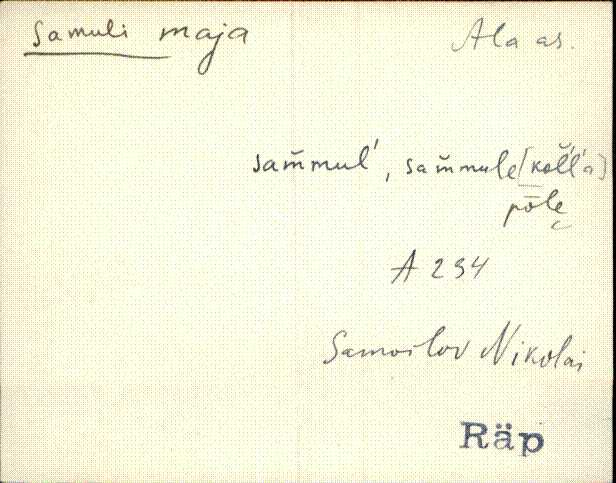 Samuli maja Ala as.
sam̆mul', sam̆mule [koĺĺa]
pōle
A 234
Samoilov Nikolai
Räp